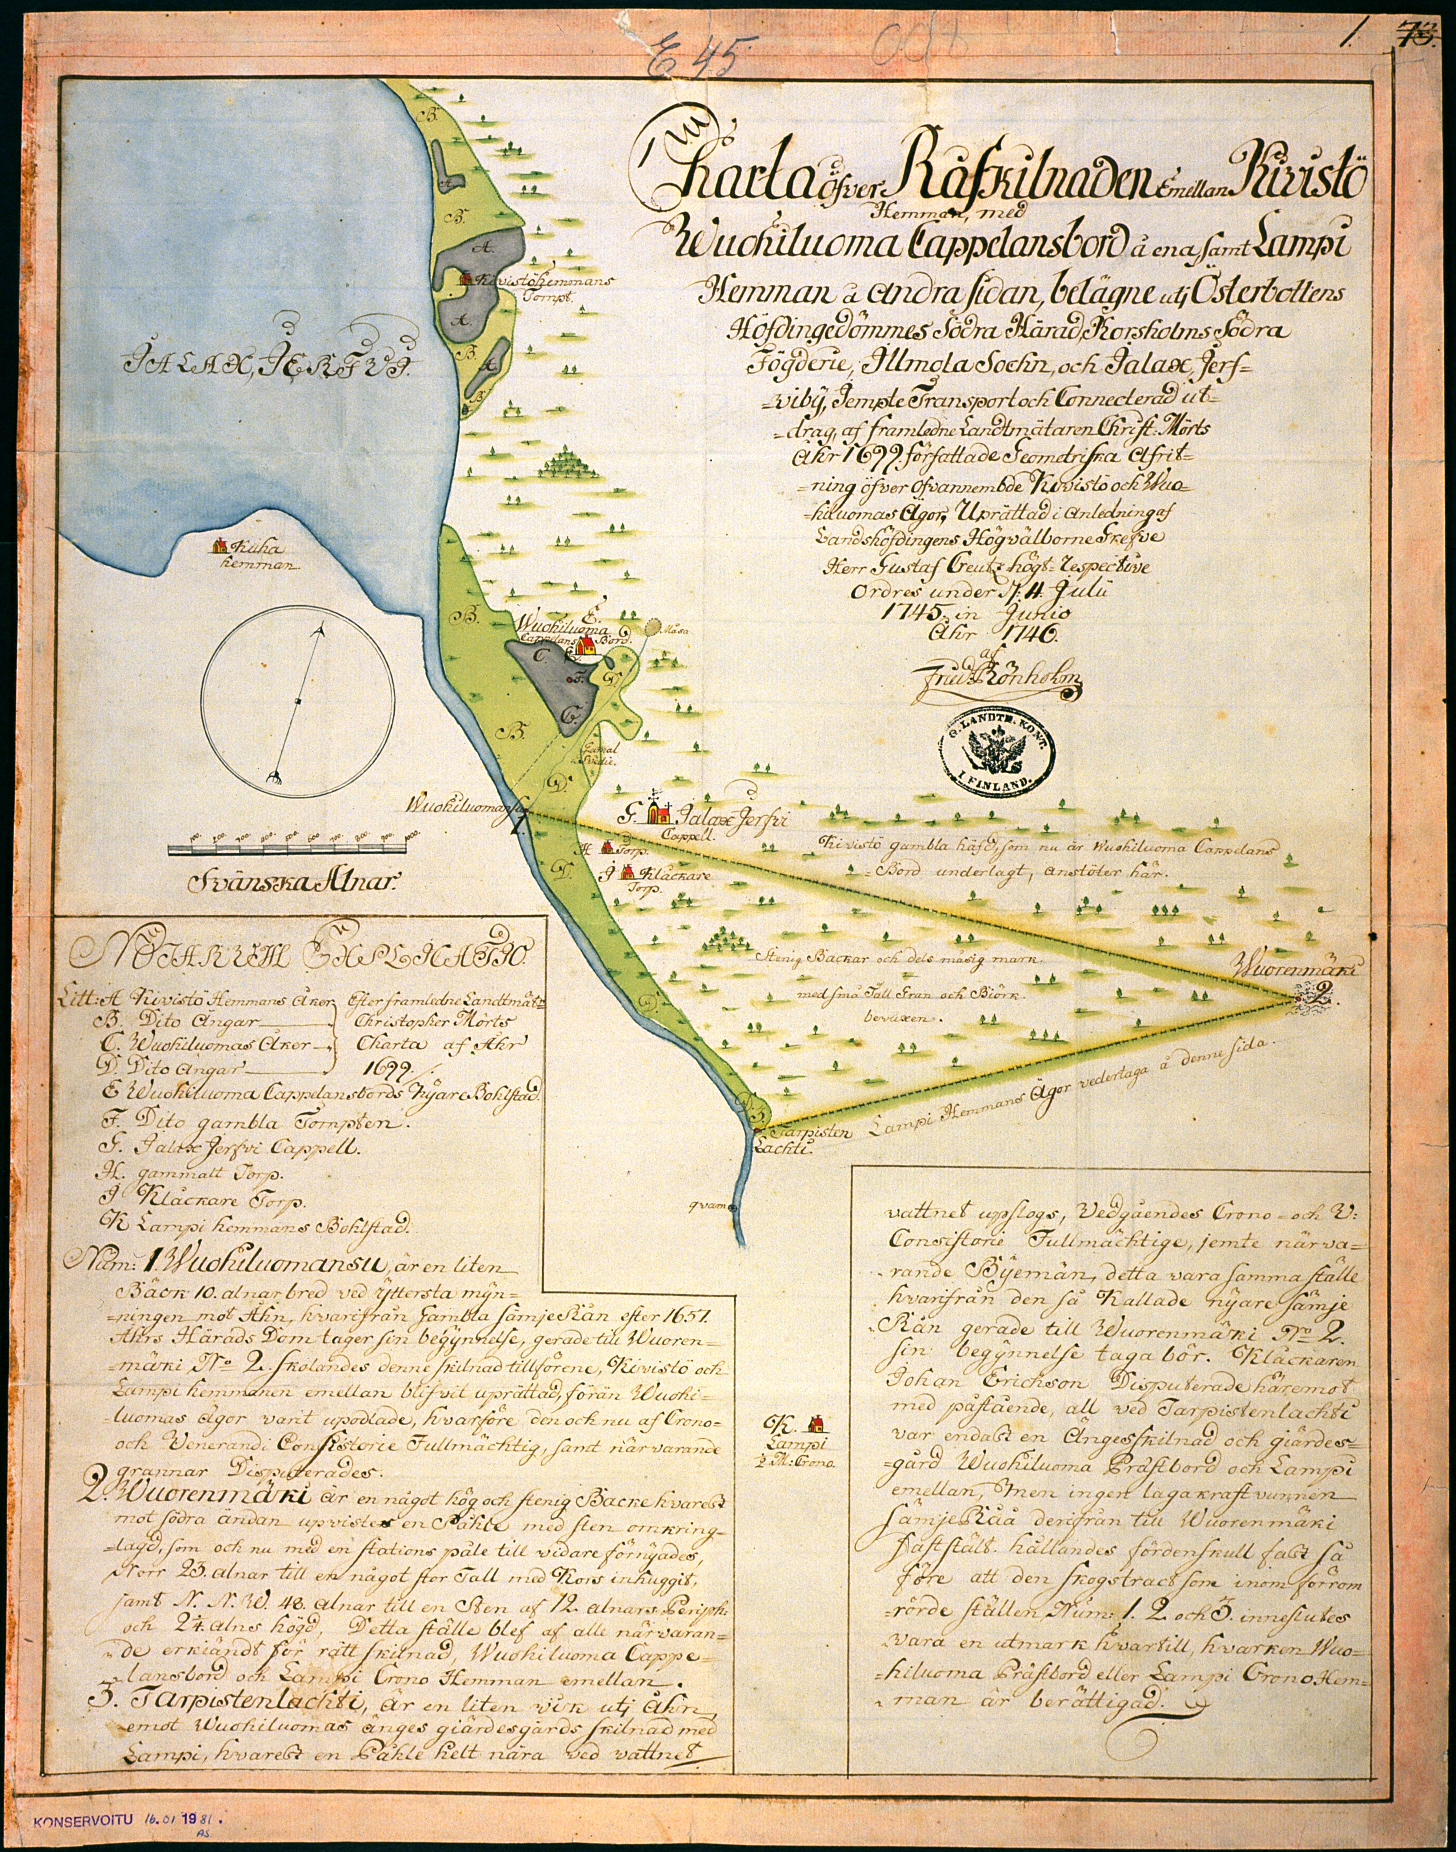 E 45
1. 73.
Charta öfver Råskilnaden Emellan Kivistö
Hemman, med
Wuohiluoma Cappelansbord å ena, samt Lampi
Hemman å andra sidan, belägne utj Österbottens
Höfdingedömmes Södra Härad, Korsholms Södra
Fögderie, Illmola Sochn, och Jalax, Jerf-
-viby, Jemte Transport och Connecterad ut-
-drag, af framledne Landtmätaren Christ: Mörts
Åhr 1699. författade Geometriska Afrit-
-ning öfver ofvannembde Kivistö och Wuo-
-hiluomas Ägor, Uprättad i anledning af
Landshöfdingens Högvälborne Grefve
Herr Gustaf Creutz högt-respective
Ordres under d. 4. Julii
1745, in Junio
Åhr 1746.
af
Frid: Rönholm
G. LANDTM. KONT.
I. FINLAND.
B.
A.
B.
A.
Kivistö hemmans
Tompt.
A.
B.
A.
B.
JALAX, JERFVI.
Kuha
hemman
B.
E.
Wuohiluoma
Cappelans Bord.
Måsa
C.
F.
D.
C.
B.
Gamal
D.
Wuohiluomansu
1.
G. Jalax Jerfvi
Cappell.
H Torp.
J Kläckare
Torp.
D.
Kivistö gambla häfd, som nu är Wuohiluoma Cappelans
-Bord underlagt, anstöter här.
Svänska Alnar.
Stenig Backar och dels måsig mark
med små Tall Gran och Biörk
beväxen.
Wuorenmäki
2.
D.
Lampi Hemmans Ägor vedertaga å denne sida.
D.
3.
Tarpisten
Lachti.
qvarn
NOTARUM EXPLICATIO.
Litt: A Kivistö Hemmans Åker
B. Dito Ängar
C. Wuohiluomas Åker
D. Dito Ängar
Efter framledne Landtmät=
Christopher Mörts
Charta af Åhr
1699.
E Wuohiluoma Cappelansbords Nyare Bohlstad.
F. Dito gambla Tompten.
G. Jalax Jerfvi Cappell.
H. gammalt Torp.
J Kläckare Torp.
K Lampi hemmans Bohlstad.
Num: 1 Wuohiluomansu, är en liten
Bäck 10. alnar bred ved yttersta myn=
=ningen mot Åhn, hvarifrån Gambla Sämje Rån efter 1651.
Åhrs Härads Dom tager sin begynnelse, gerade till Wuoren=
=mäki No 2. skolandes denne skilnad tillförene, Kivistö och
Lampi hemmanen emellan blifvit uprättad, förän Wuohi=
=luomas Ägor varit upodlade, hvarföre den och nu af Crono=
och Venerandi Consistorie Fullmächtig, samt närvarande
grannar Disputerades.
2. Wuorenmäki är en något hög och stenig Backe hvarest
mot södra ändan upvistes en Påhle med sten omkring=
=lagd, som och nu med en stations påle till vidare förnyades,
Norr 23. alnar till en något stor Tall med Kors inhuggit,
samt N. N. W. 48. alnar till en Sten af 12. alnars Periph:
och 2¼ alns högd, Detta ställe blef af alle närvaran=
=de erkiändt för rätt skilnad, Wuohiluoma Cappe=
=lansbord och Lampi Crono Hemman emellan.
3. Tarpistenlachti, är en liten vik utj Åhn,
emot Wuohiluomas änges giärdesgårds skilnad med
Lampi, hvarest en Påhle helt nära ved vattnet
K.
Lampi
½ M: Crono.
vattnet upslogs, Vedgåendes Crono- och V:
Consistorie Fullmächtige, jemte närva=
rande Byemän, detta vara samma ställe
hvarifrån den så Kallade nyare sämje
Rån gerade till Wuorenmäki No 2.
sin begynnelse taga bör. Kläckaren
Johan Erichson Disputerade häremot
med påstående, att ved Tarpistenlachti
var endast en Ängesskilnad och giärdes=
=gård Wuohiluoma Prästbord och Lampi
emellan, Men ingen laga kraft vunnen
Sämje Råå derifrån till Wuorenmäki
fastställt, hållandes fördenskull fast så
före att den skogstract som inom förrom
=rörde ställen Num: 1. 2 och 3. inneslutes
vara en utmark hvartill, hvarken Wuo=
=hiluoma Prästbord eller Lampi Crono Hem=
=man är berättigad.
KONSERVOITU 16.01 1981.
AS